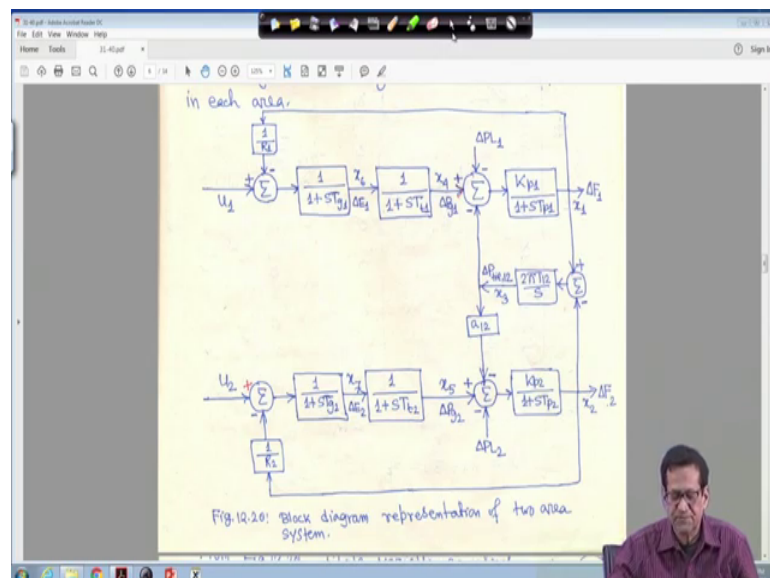 31-40.pdf - Adobe Acrobat Reader DC
File Edit View Window Help
Home Tools 31-40.pdf × Sign In
in each area.
1/R1
ΔPL1
U1 + - Σ 1/(1+STg1) x6 ΔE1 1/(1+STt1) x4 ΔPg1 + - - Σ Kp1/(1+STp1) ΔF1 x1
ΔPtie,12 x3 2πT12/S + - Σ
a12
U2 + - Σ 1/(1+STg1) x7 ΔE2 1/(1+STt2) x5 ΔPg2 + - - Σ Kp2/(1+STp2) ΔF2 x2
1/R2
ΔPL2
Fig.12.20: Block diagram representation of two area
system.